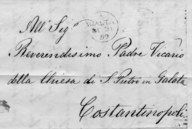 All' Sig
Reverendesimo Padre Vicario
della Chiesa di S Pietro in Galata
Costantinopoli